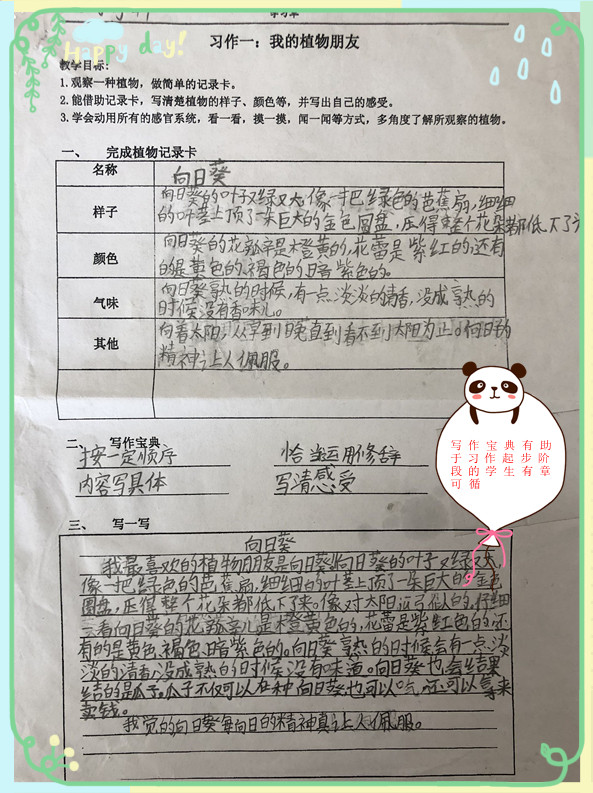 Happy day!
学习单
习作一：我的植物朋友
教学目标:
1.观察一种植物，做简单的记录卡。
2.能借助记录卡，写清楚植物的样子、颜色等，并写出自己的感受。
3.学会动用所有的感官系统，看一看，摸一摸，闻一闻等方式，多角度了解所观察的植物。
一、 完成植物记录卡
名称 向日葵
样子 向日葵的叶子又绿又大,像一把绿色的芭蕉扇,细细
的叶茎上顶了一朵巨大的金色圆盘，压得整个花朵都低下了
颜色 向日葵的花瓣是橙黄的,花蕾是紫红的,还有
的是黄色的,褐色的,暗紫色的。
气味 向日葵熟的时候,有一点淡淡的清香,没成熟的
时候没有香味儿。
其他 向着太阳,从早到晚直到看不到太阳为止。向日的
精神让人佩服。
二、 写作宝典
按一定顺序 恰当运用修辞
内容写具体 写清感受
写作宝典有助
于习作起步阶
段的学生有章
可循
三、 写一写
向日葵
我最喜欢的植物朋友是向日葵,向日葵的叶子又绿又大,
像一把绿色的芭蕉扇,细细的叶茎上顶了一朵巨大的金色
圆盘,压得整个花朵都低下了来。像对太阳 弓似的。仔细
去看向日葵的花瓣 是橙黄色的,花蕾是紫红色的,还
有的是黄色,褐色,暗紫色的。向日葵熟的时候会有一点淡
淡的清香,没成熟的时候没有味道。向日葵也会结果
结的是瓜子。瓜子不仅可以在种向日葵也可以吃,还可以拿来
卖钱。
我觉的向日葵每向日的精神真让人佩服。